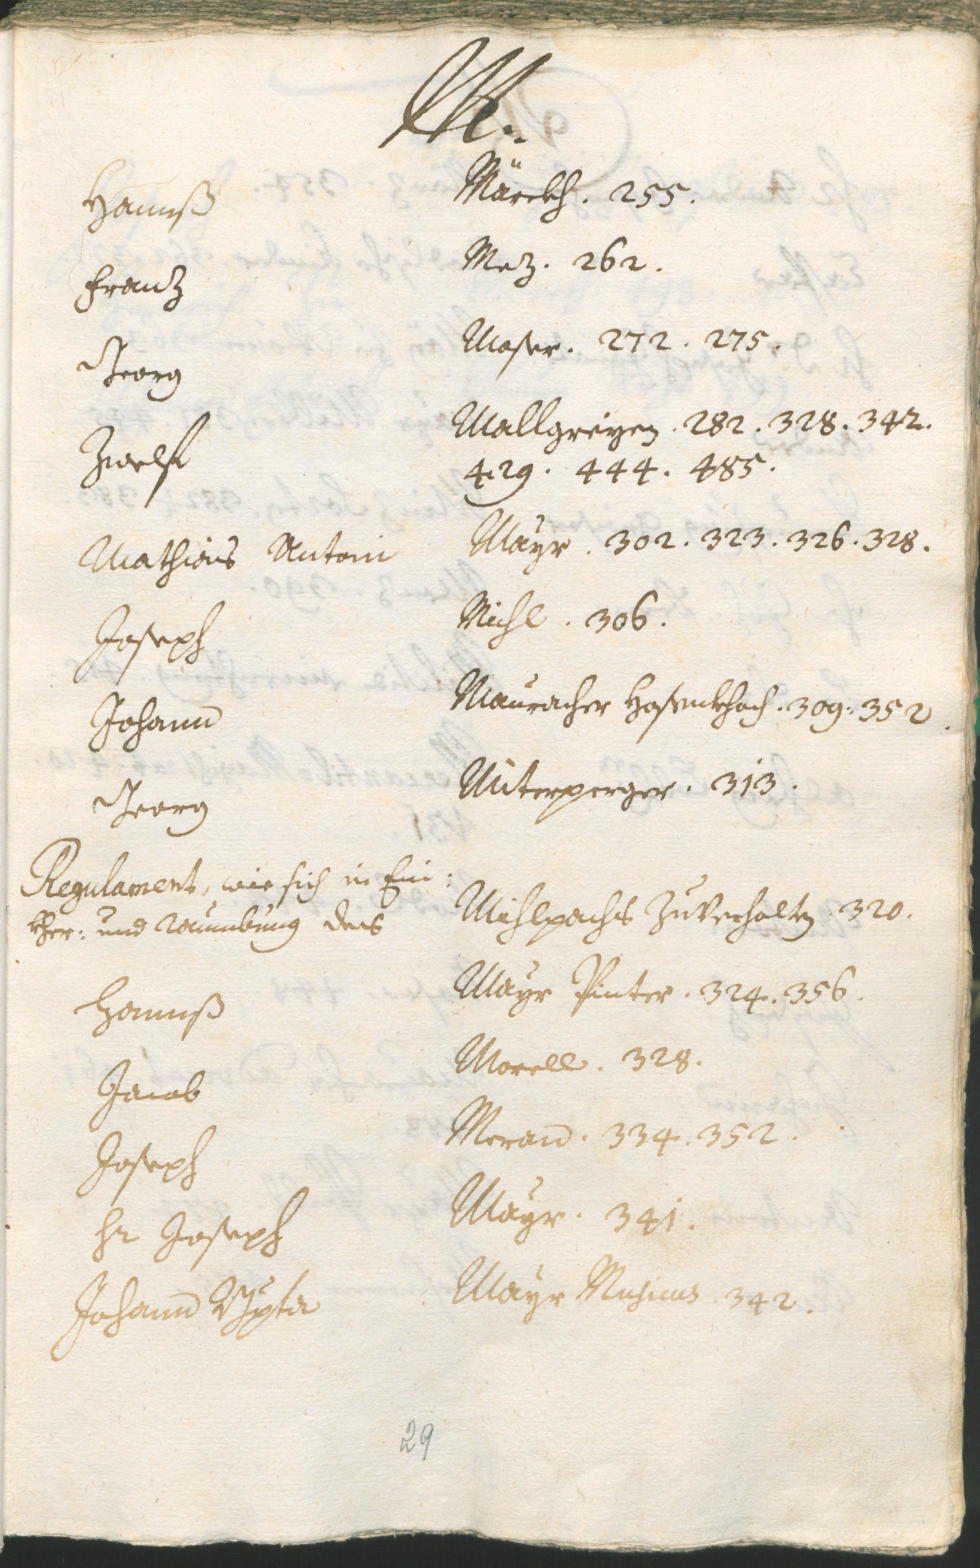 M.
Hannß Märckh. 255.
Frantz Mez. 262.
Georg Moser. 272. 275.
Zwölf Mallgreyen. 282. 328. 342.
429. 444. 485.
Mathias Antoni Mayr. 302. 323. 326. 328.
Joseph Michl. 306.
Johann Mauracher Hafenkhoch. 309. 352.
Georg Mitterperger. 313.
Regulament, wie sich in Ein:
kher: und Raumbung des Mihlpachs zuverhalten. 320.
Hannß Mayr Pinter. 324. 356.
Jacob Morell. 328.
Joseph Meran. 334. 352.
Hr Joseph Mayr. 341.
Johann Bpta Mayr Musicus. 342.
29